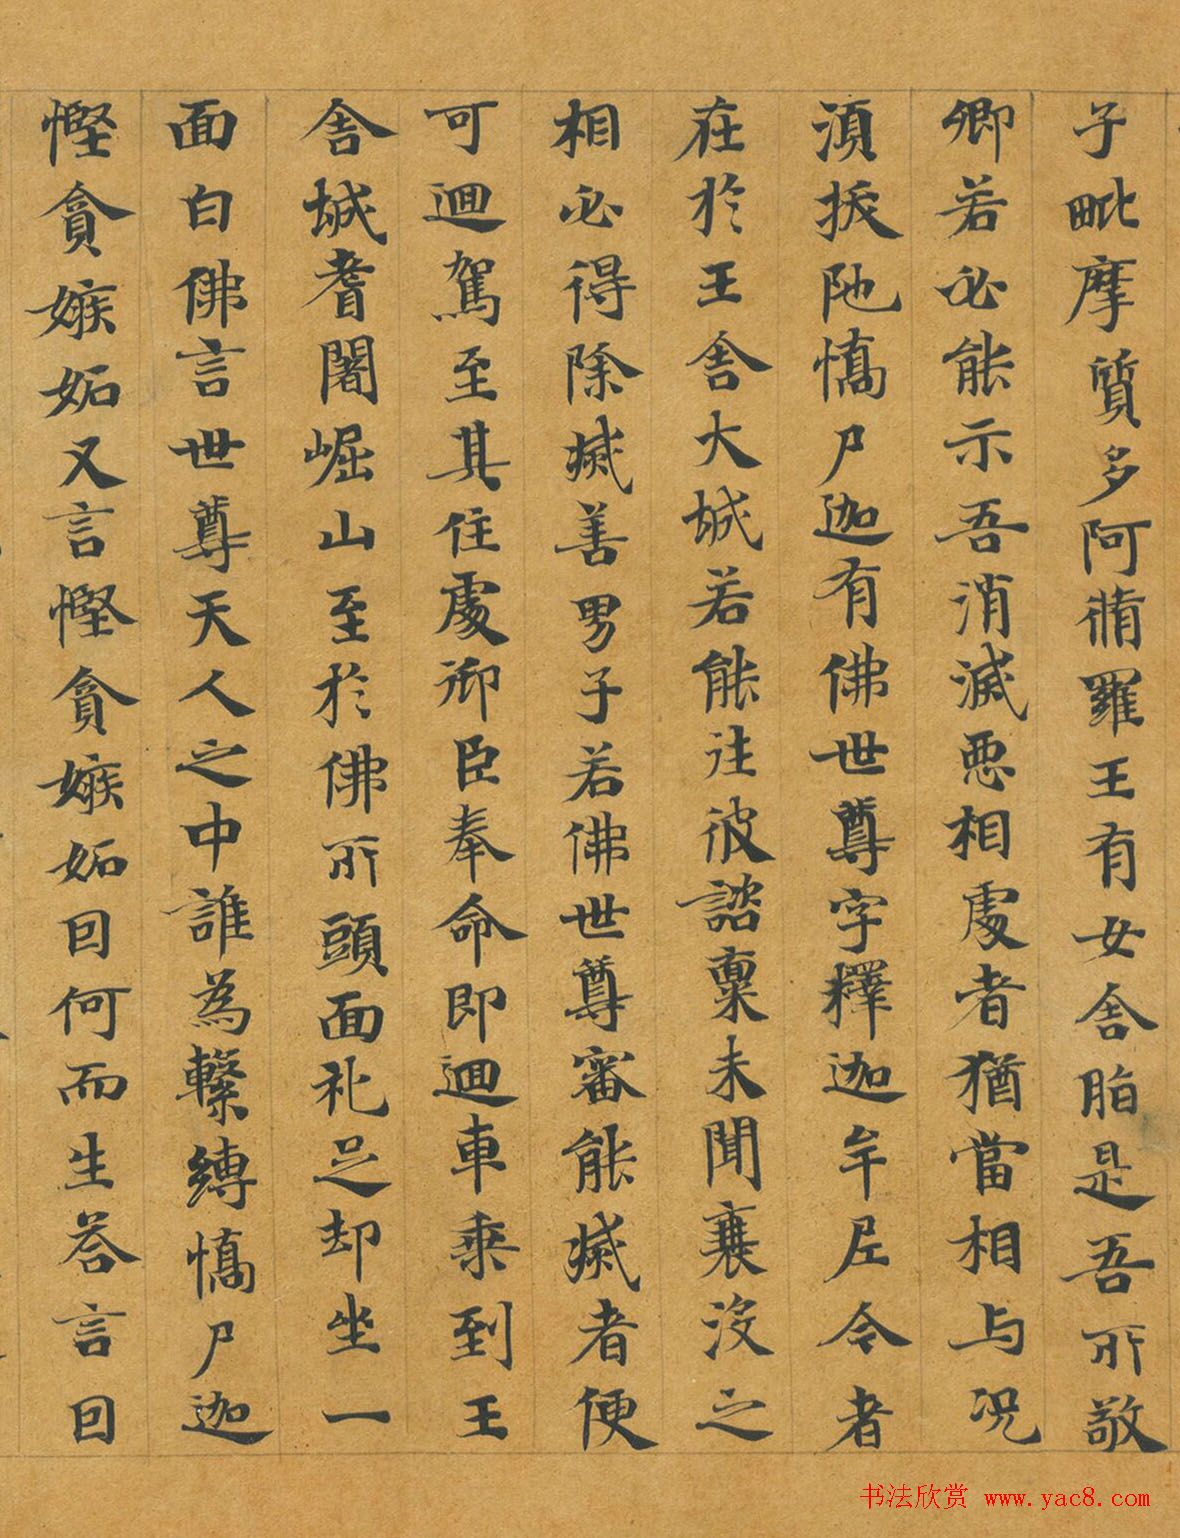 子毗摩質多阿脩羅王有女舍胎是吾所敬
卿若必能示吾消滅惡相處者猶當相與況
須拔陁憍尸迦有佛世尊字釋迦牟尼今者
在於王舍大城若能往彼諮稟未聞衰沒之
相必得除滅善男子若佛世尊審能滅者便
可迴駕至其住處御臣奉命即迴車乘到王
舍城耆闍崛山至於佛所頭面礼足却坐一
面白佛言世尊天人之中誰為繫縛憍尸迦
慳貪嫉妬又言慳貪嫉妬因何而生答言因
书法欣赏 www.yac8.com